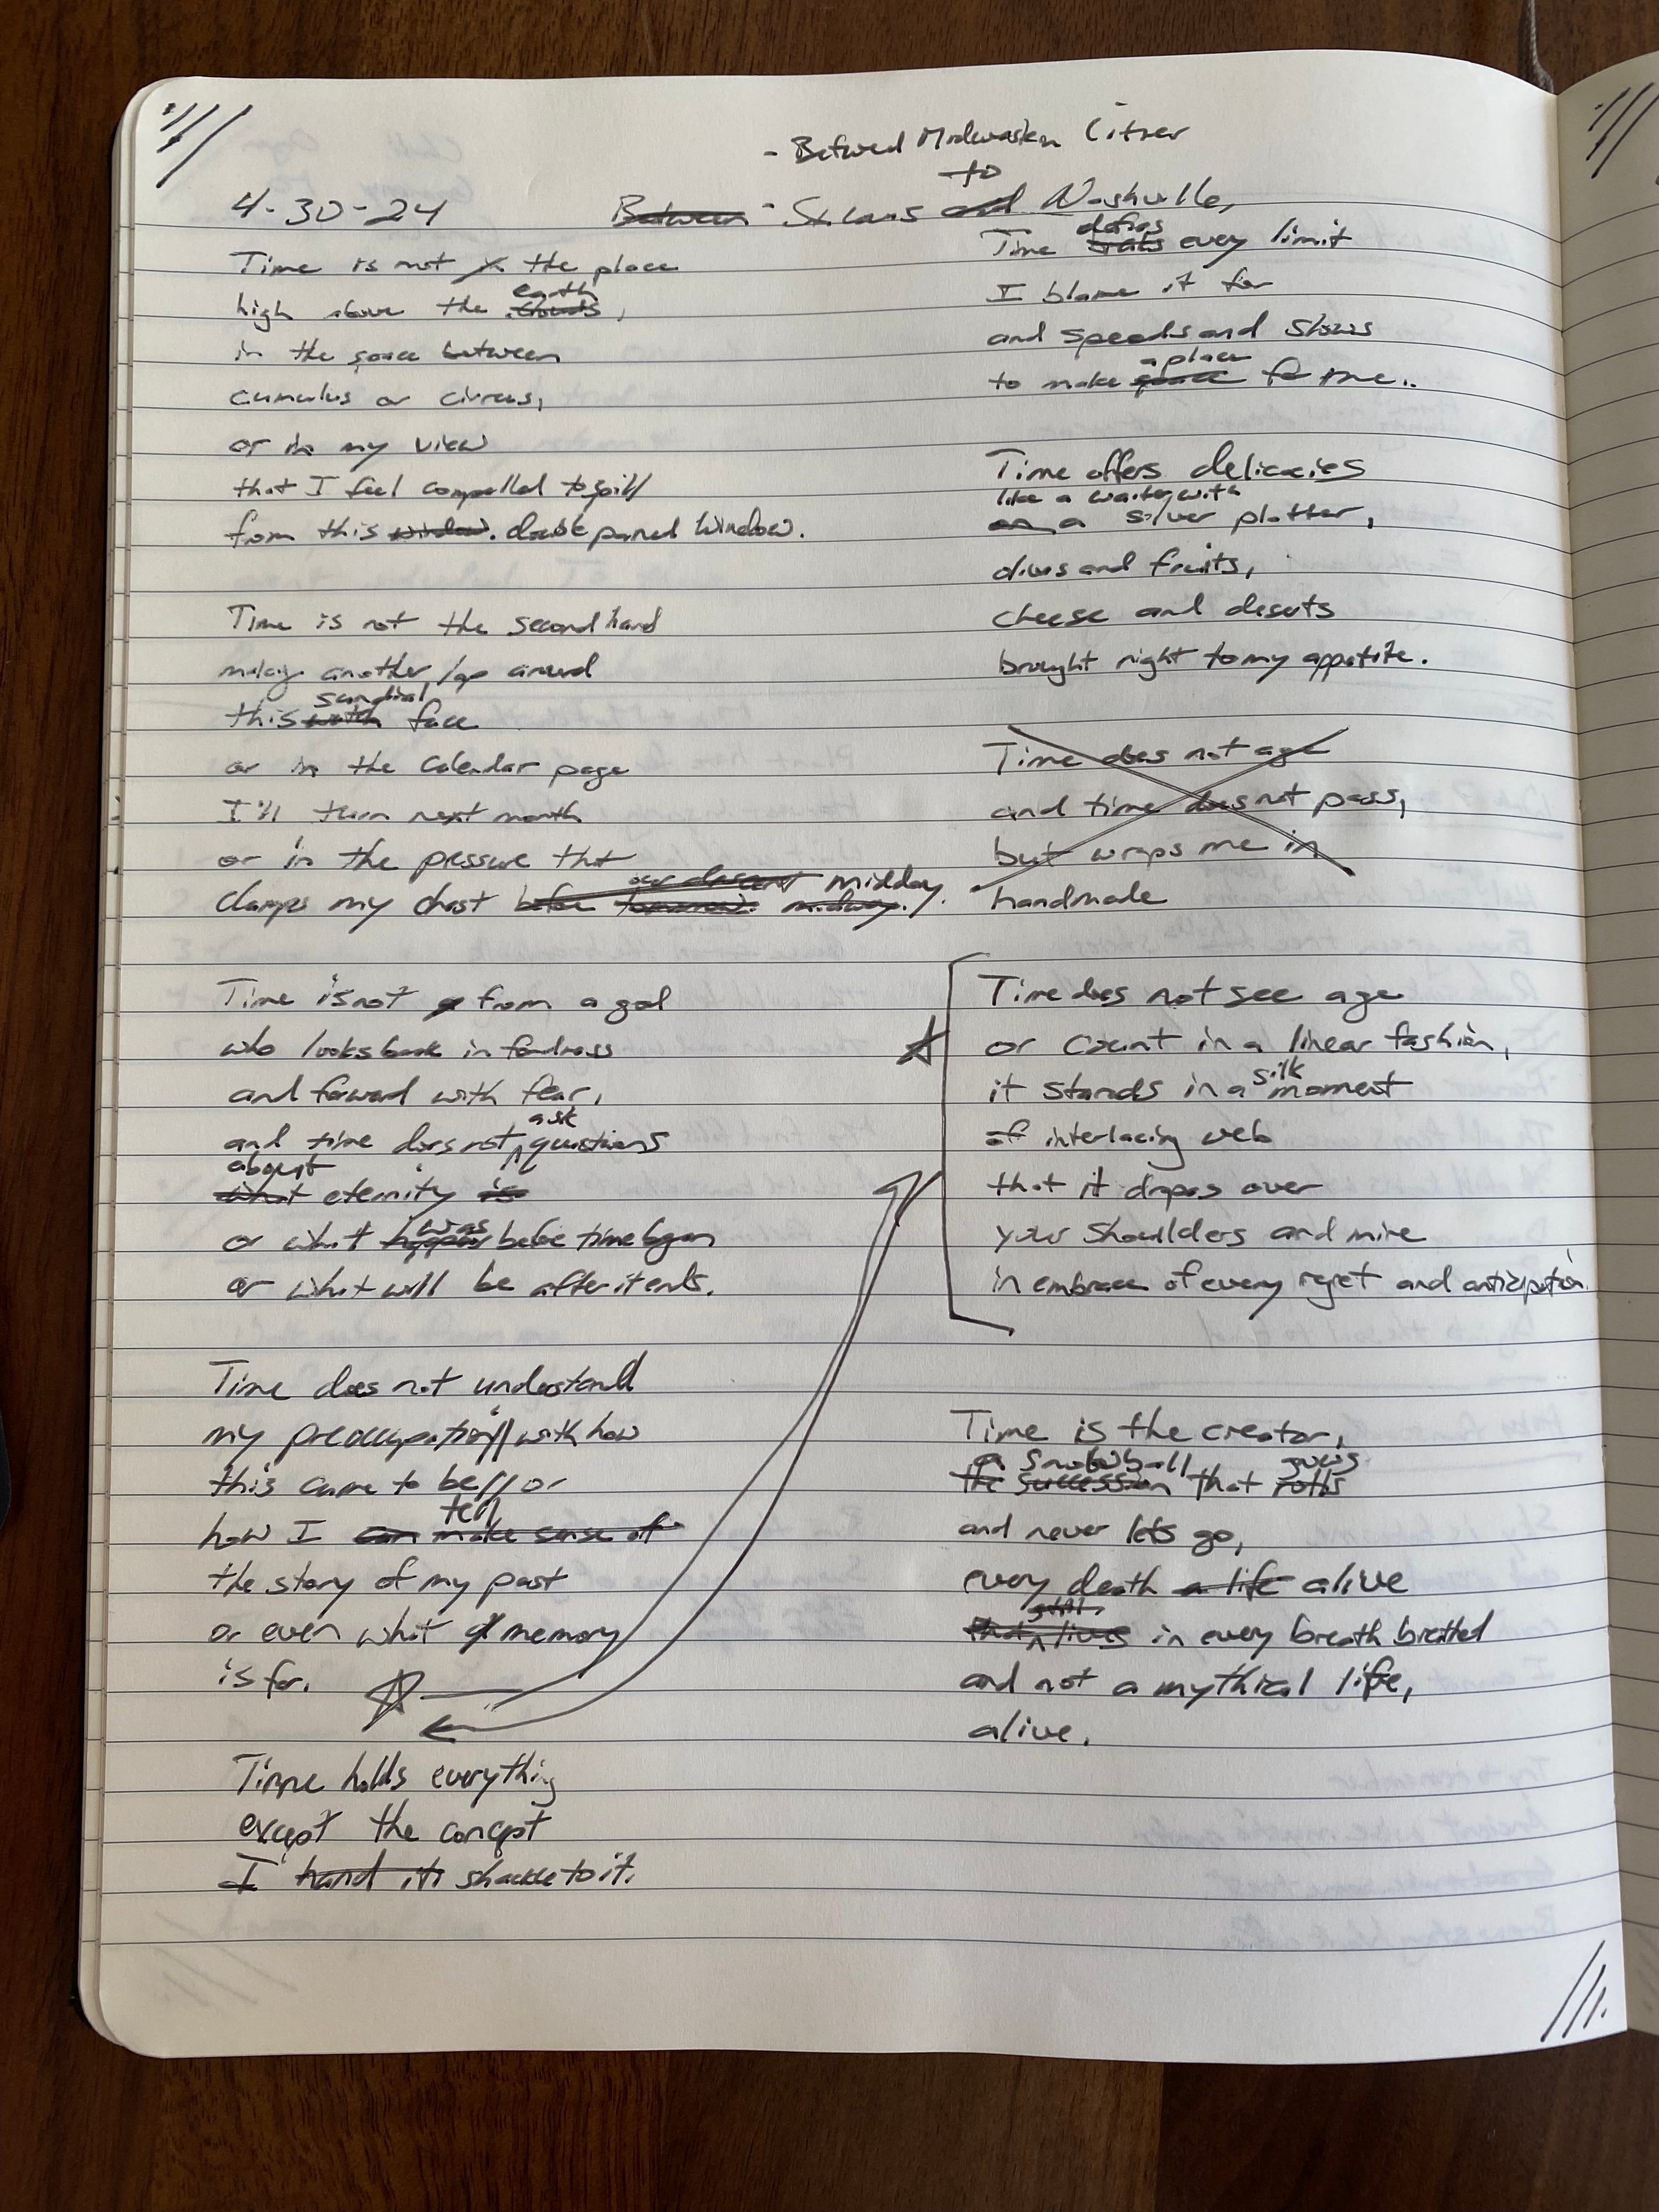 - Between Midwestern Cities
to
4-30-24
Between - St. Louis and Nashville,
Time is not the place
earth
high above the clouds,
in the space between
cumulus or cirrus,
or in my view
that I feel compelled to spill
from this window. double paned window.
Time is not the second hand
making another lap around
sundial
this watch face
or in the calendar page
I'll turn next month
or in the pressure that
our descent midday.
clamps my chest before tomorrow. midway.
Time is not from a god
who looks back in fondness
and forward with fear,
ask
and time does not questions
about
what eternity is
was
or what happens before time began
or what will be after it ends.
Time does not understand
my preoccupation // with how
this came to be // or
tell
how I can make sense of
the story of my past
or even what memory
is for.
Time holds everything
except the concept
I hand it shackle to it.
defies
Time every limit
I blame it for
and speeds and slows
a place
to make space for me..
Time offers delicacies
like a waiter with
on a silver platter,
olives and fruits,
cheese and deserts
brought right to my appetite.
Time does not age
and time does not pass,
but wraps me in
handmade
Time does not see age
or count in a linear fashion,
silk
it stands in a moment
of interlacing web
that it drapes over
your shoulders and mine
in embrace of every regret and anticipation.
Time is the creator,
a snowball grows
the succession that rolls
and never lets go,
every death a life alive
still
that lives in every breath breathed
and not a mythical life,
alive.